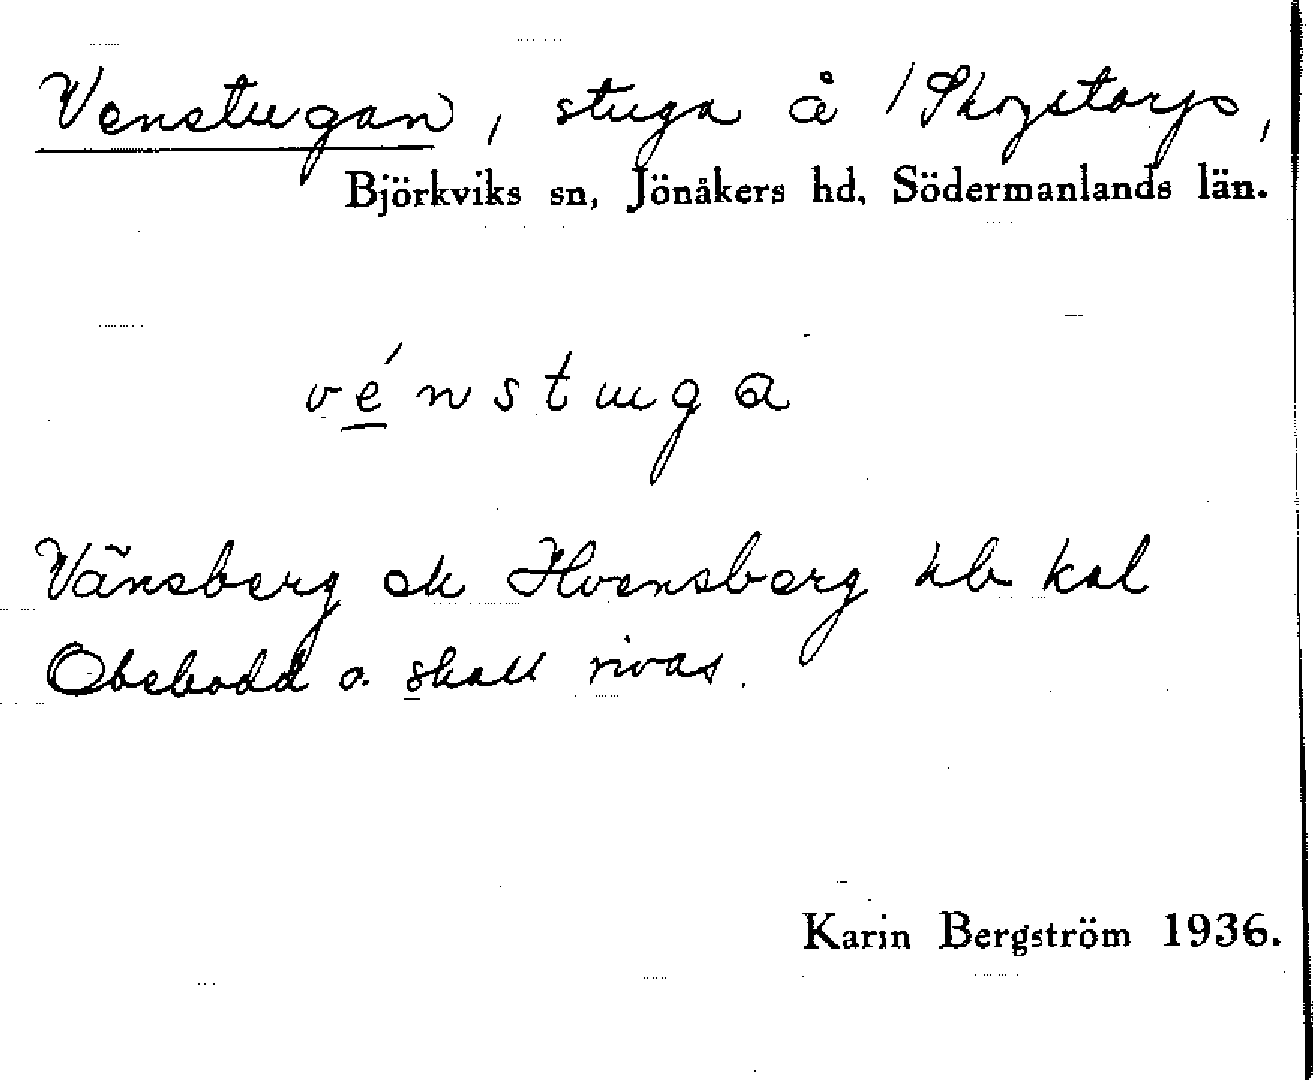 Venstugan, stuga å Skogstorp,
Björkviks sn, Jönåkers hd, Södermanlands län.
vénstuga
Vänsberg ek Hvensberg kal
Obebodd o. skall rivas.
Karin Bergström 1936.